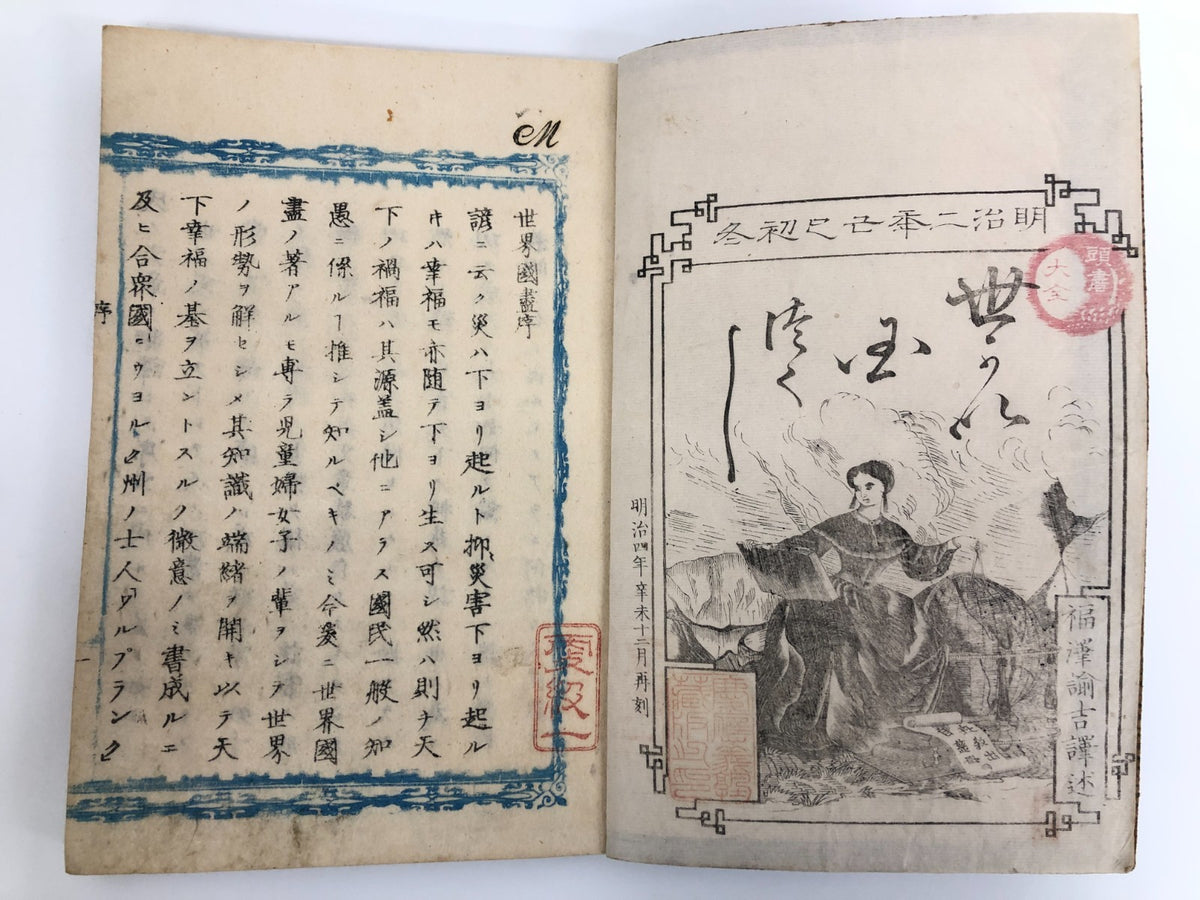 明治二秊己巳初冬
頭書
大全
世かい
国
つく
し
明治四年辛未十二月再刻
福澤諭吉譯述
慶應義塾
藏版之印
世界國盡序
諺ニ云ク災ハ下ヨリ起ルト抑災害下ヨリ起ル
キハ幸福モ亦随テ下ヨリ生ス可シ然ハ則チ天
下ノ禍福ハ其源蓋シ他ニアラス國民一般ノ知
愚ニ係ルヿ推シテ知ルベキノミ今爰ニ世界國
盡ノ著アルモ専ラ児童婦女子ノ輩ヲシテ世界
ノ形勢ヲ解セシメ其知識ノ端緒ヲ開キ以テ天
下幸福ノ基ヲ立ントスルノ微意ノミ書成ルニ
及ヒ合衆國ニウヨルク州ノ士人ワルプランク
序